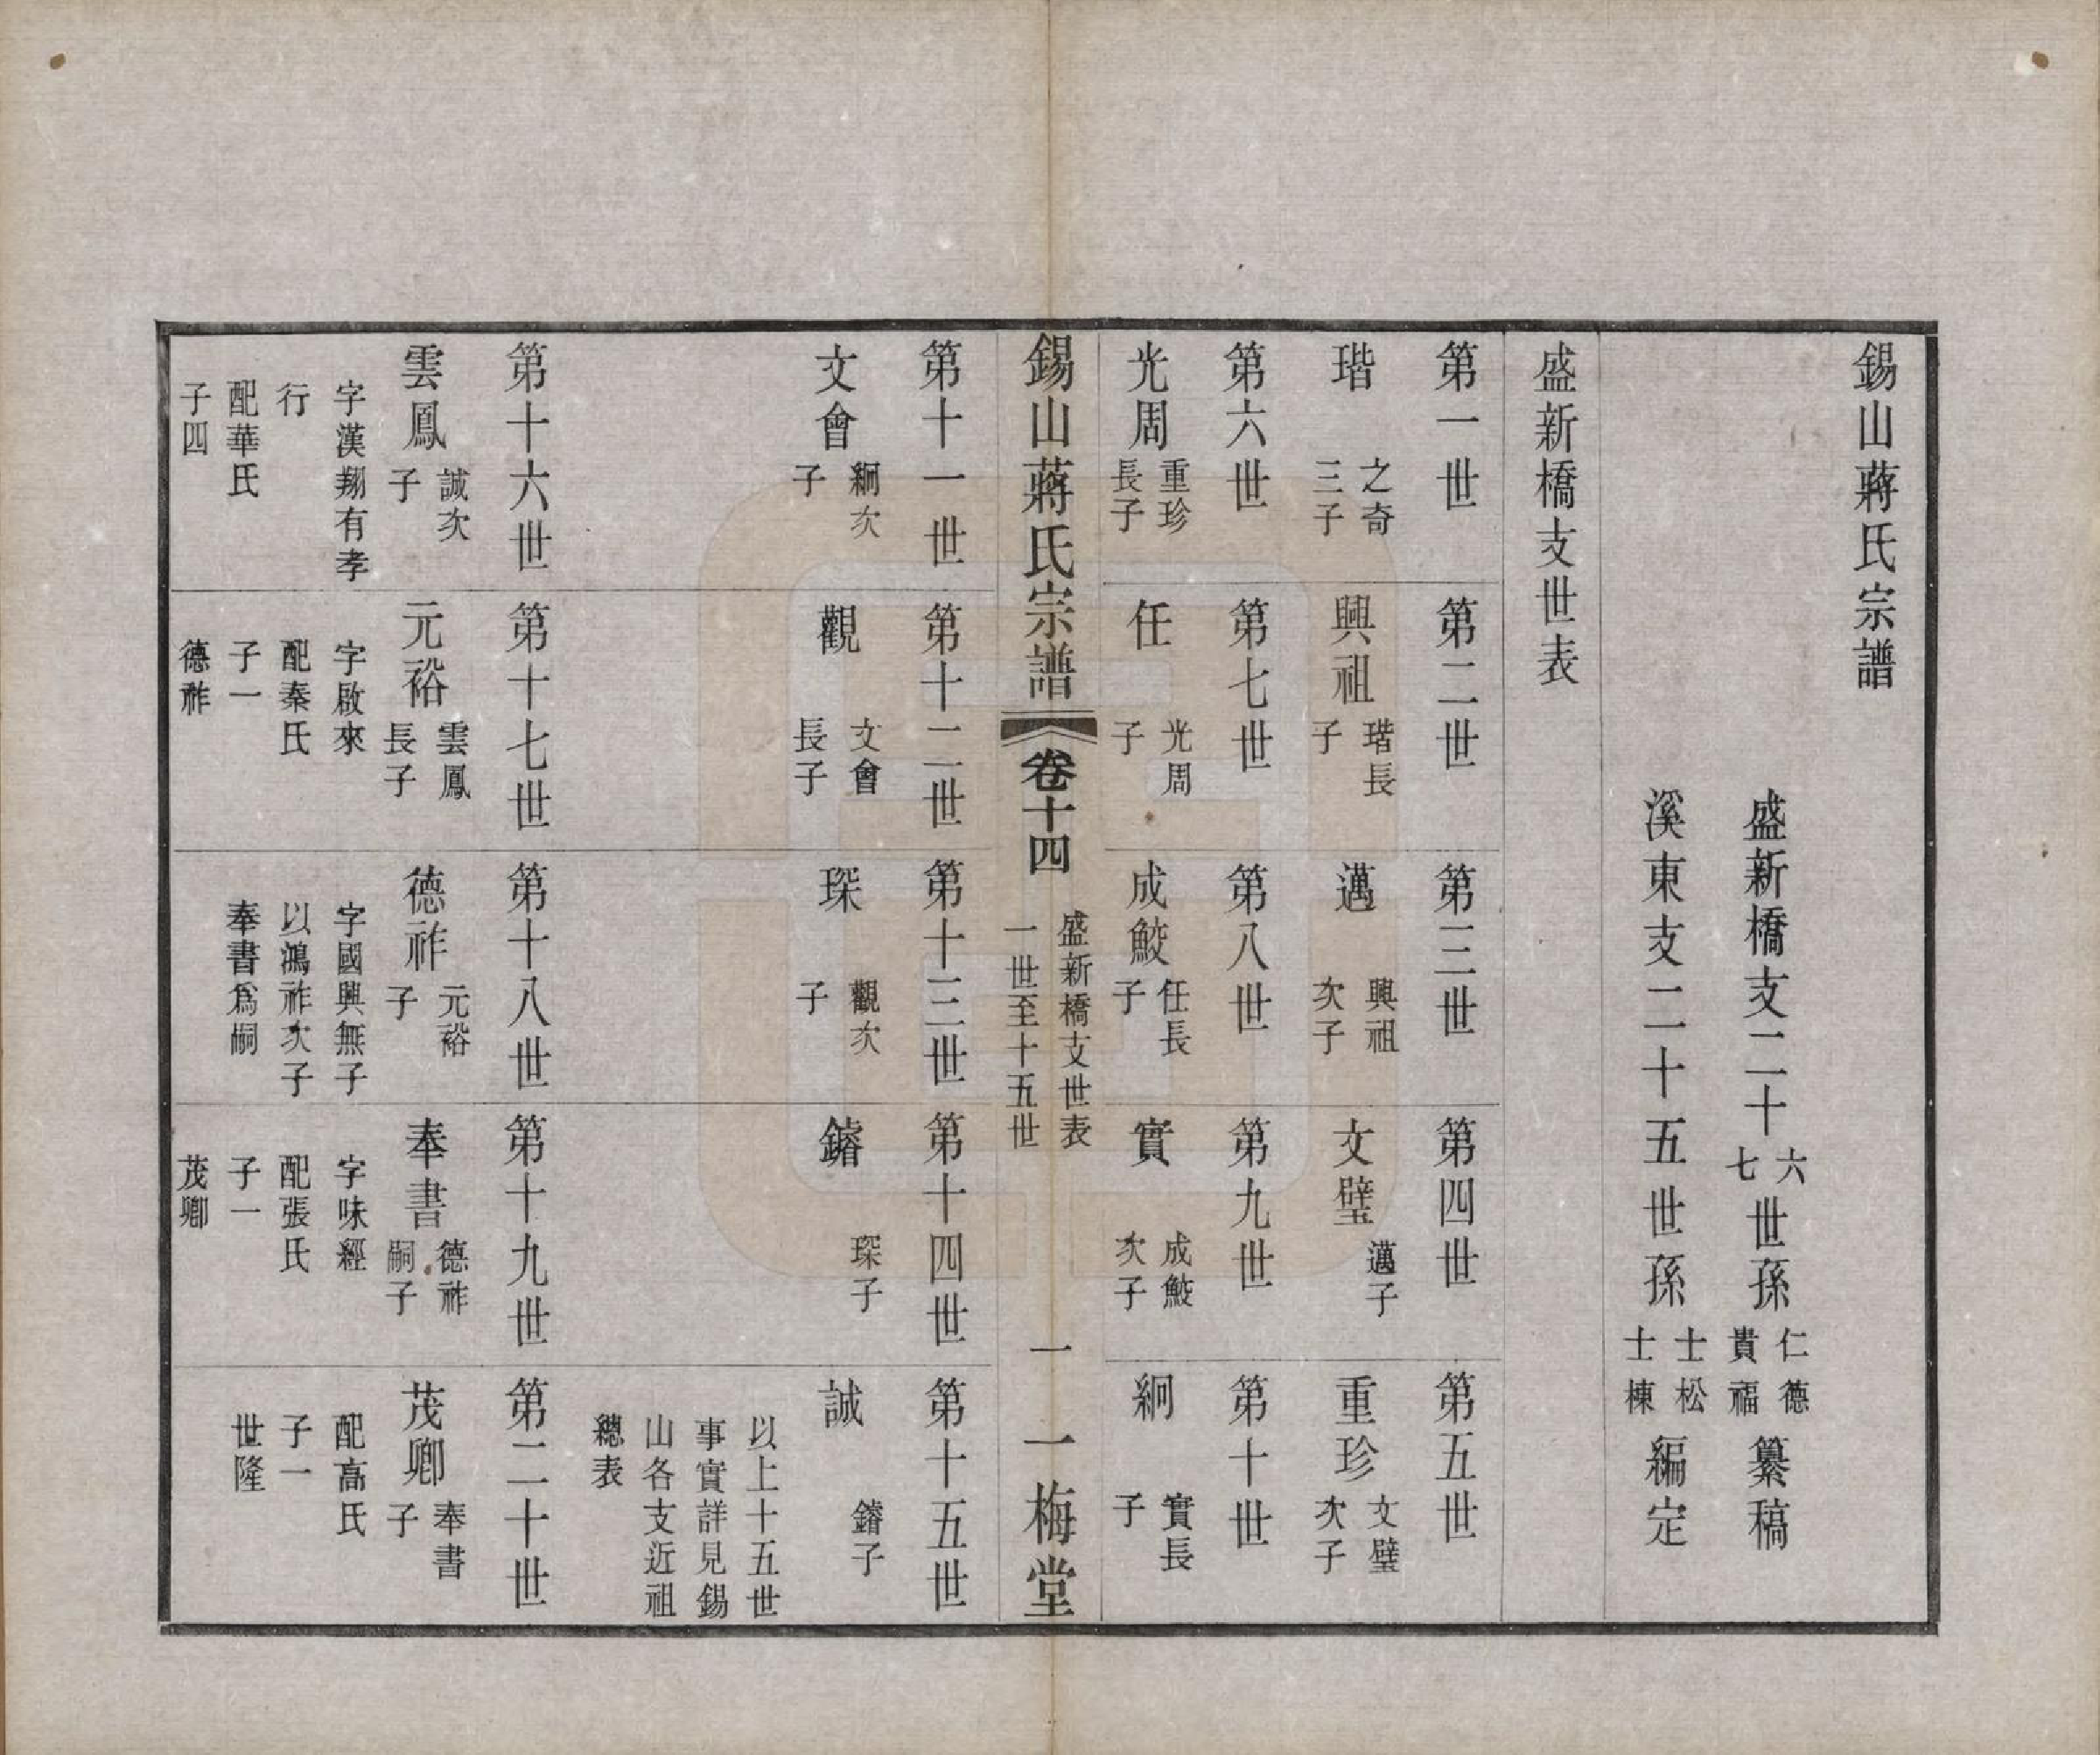 錫山蔣氏宗譜
盛新橋支二十六七世孫仁德貴福纂稿
溪東支二十五世孫士松士棟編定
盛新橋支世表
第一世
瑎
之奇
三子
第二世
興祖
瑎長
子
第三世
邁
興祖
次子
第四世
文璧
邁子
第五世
重珍
文璧
次子
第六世
光周
重珍
長子
第七世
任
光周
子
第八世
成鮫
任長
子
第九世
實
成鮫
次子
第十世
絅
實長
子
錫山蔣氏宗譜
卷十四
盛新橋支世表
一世至十五世
一
一梅堂
第十一世
文會
絅次
子
第十二世
觀
文會
長子
第十三世
琛
觀次
子
第十四世
鏥
琛子
第十五世
誠
鏥子
以上十五世
事實詳見錫
山各支近祖
總表
第十六世
雲鳳
誠次
子
字漢翔有孝
行
配華氏
子四
第十七世
元裕
雲鳳
長子
字啟來
配秦氏
子一
德祚
第十八世
德祚
元裕
子
字國興無子
以鴻祚次子
奉書爲嗣
第十九世
奉書
德祚
嗣子
字味經
配張氏
子一
茂卿
第二十世
茂卿
奉書
子
配高氏
子一
世隆